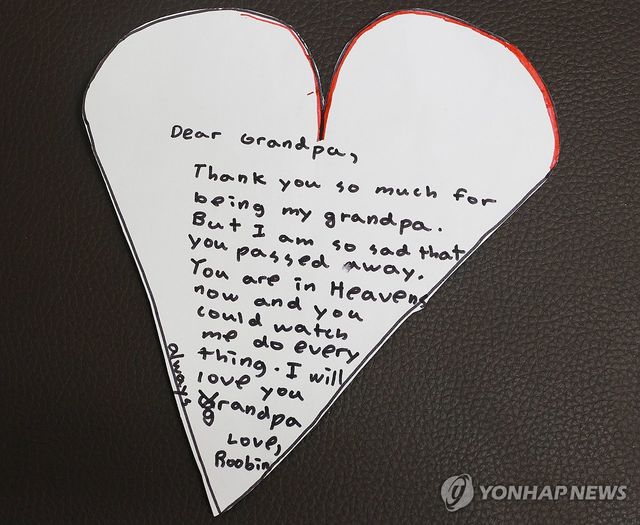 Dear Grandpa,
Thank you so much for
being my grandpa.
But I am so sad that
you passed away.
You are in Heavens
now and you
could watch
me do every
thing. I will
always
love you
grandpa
Love,
Roobin
YONHAP NEWS